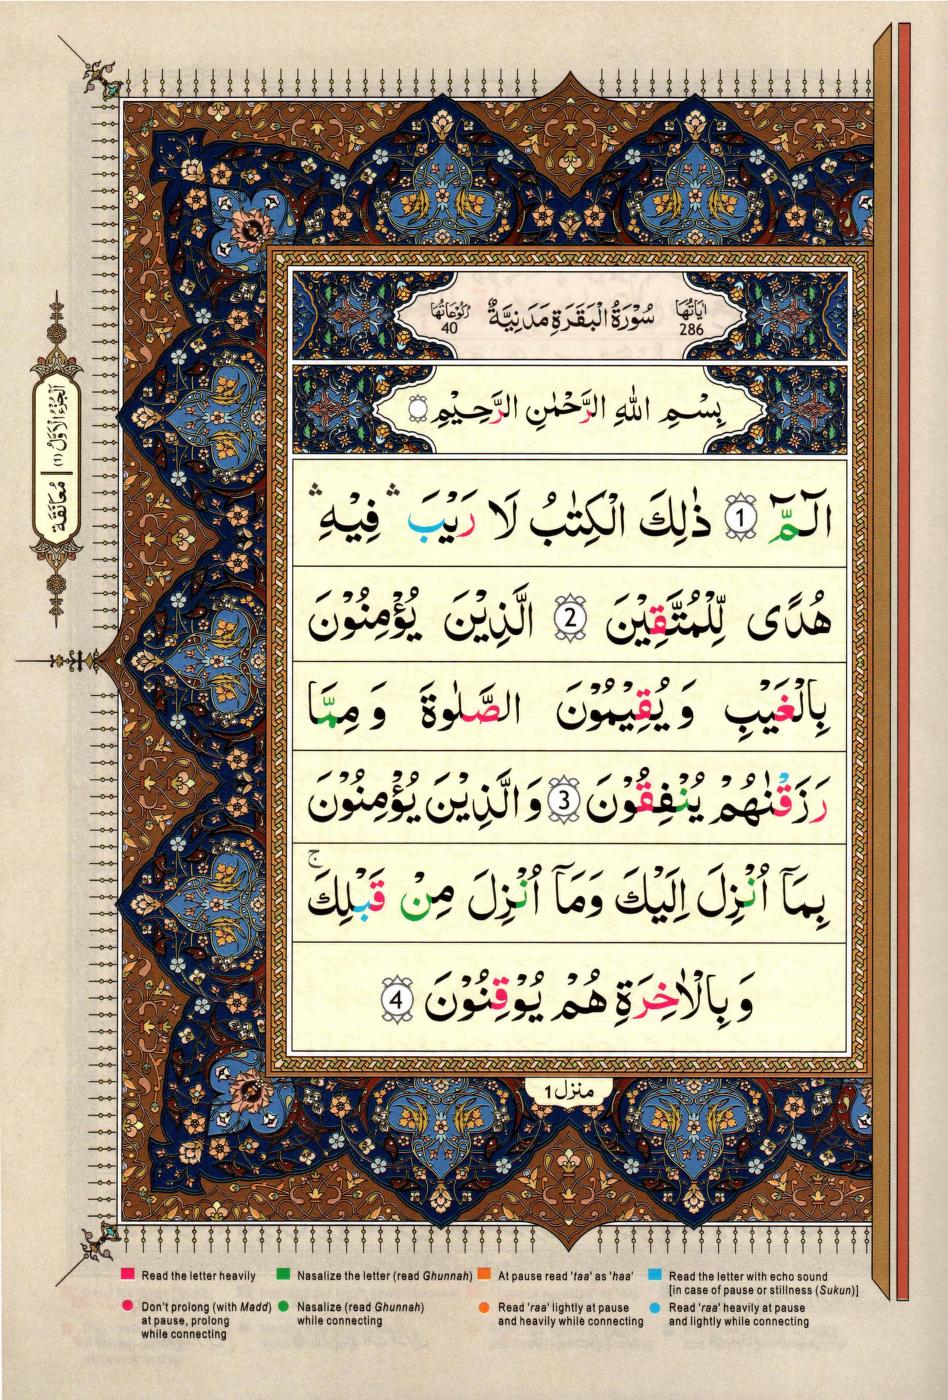 اٰیَاتُهَا 286 سُوْرَةُ الْبَقَرَةِ مَدَنِیَّةٌ رُكُوْعَاتُهَا 40
بِسْمِ اللّٰهِ الرَّحْمٰنِ الرَّحِیْمِ
الٓمّٓ 1 ذٰلِكَ الْكِتٰبُ لَا رَیْبَ ۛ فِیْهِ ۛ
هُدًی لِّلْمُتَّقِیْنَ 2 الَّذِیْنَ یُؤْمِنُوْنَ
بِالْغَیْبِ وَ یُقِیْمُوْنَ الصَّلٰوةَ وَ مِمَّا
رَزَقْنٰهُمْ یُنْفِقُوْنَ 3 وَ الَّذِیْنَ یُؤْمِنُوْنَ
بِمَاۤ اُنْزِلَ اِلَیْكَ وَمَاۤ اُنْزِلَ مِنْ قَبْلِكَ ۚ
وَ بِالْاٰخِرَةِ هُمْ یُوْقِنُوْنَ 4
منزل 1
اَلْجُزْءُ الْاَوَّلُ (1) | مُعَانَقَة
Read the letter heavily
Nasalize the letter (read Ghunnah)
At pause read 'taa' as 'haa'
Read the letter with echo sound
[in case of pause or stillness (Sukun)]
Don't prolong (with Madd)
at pause, prolong
while connecting
Nasalize (read Ghunnah)
while connecting
Read 'raa' lightly at pause
and heavily while connecting
Read 'raa' heavily at pause
and lightly while connecting